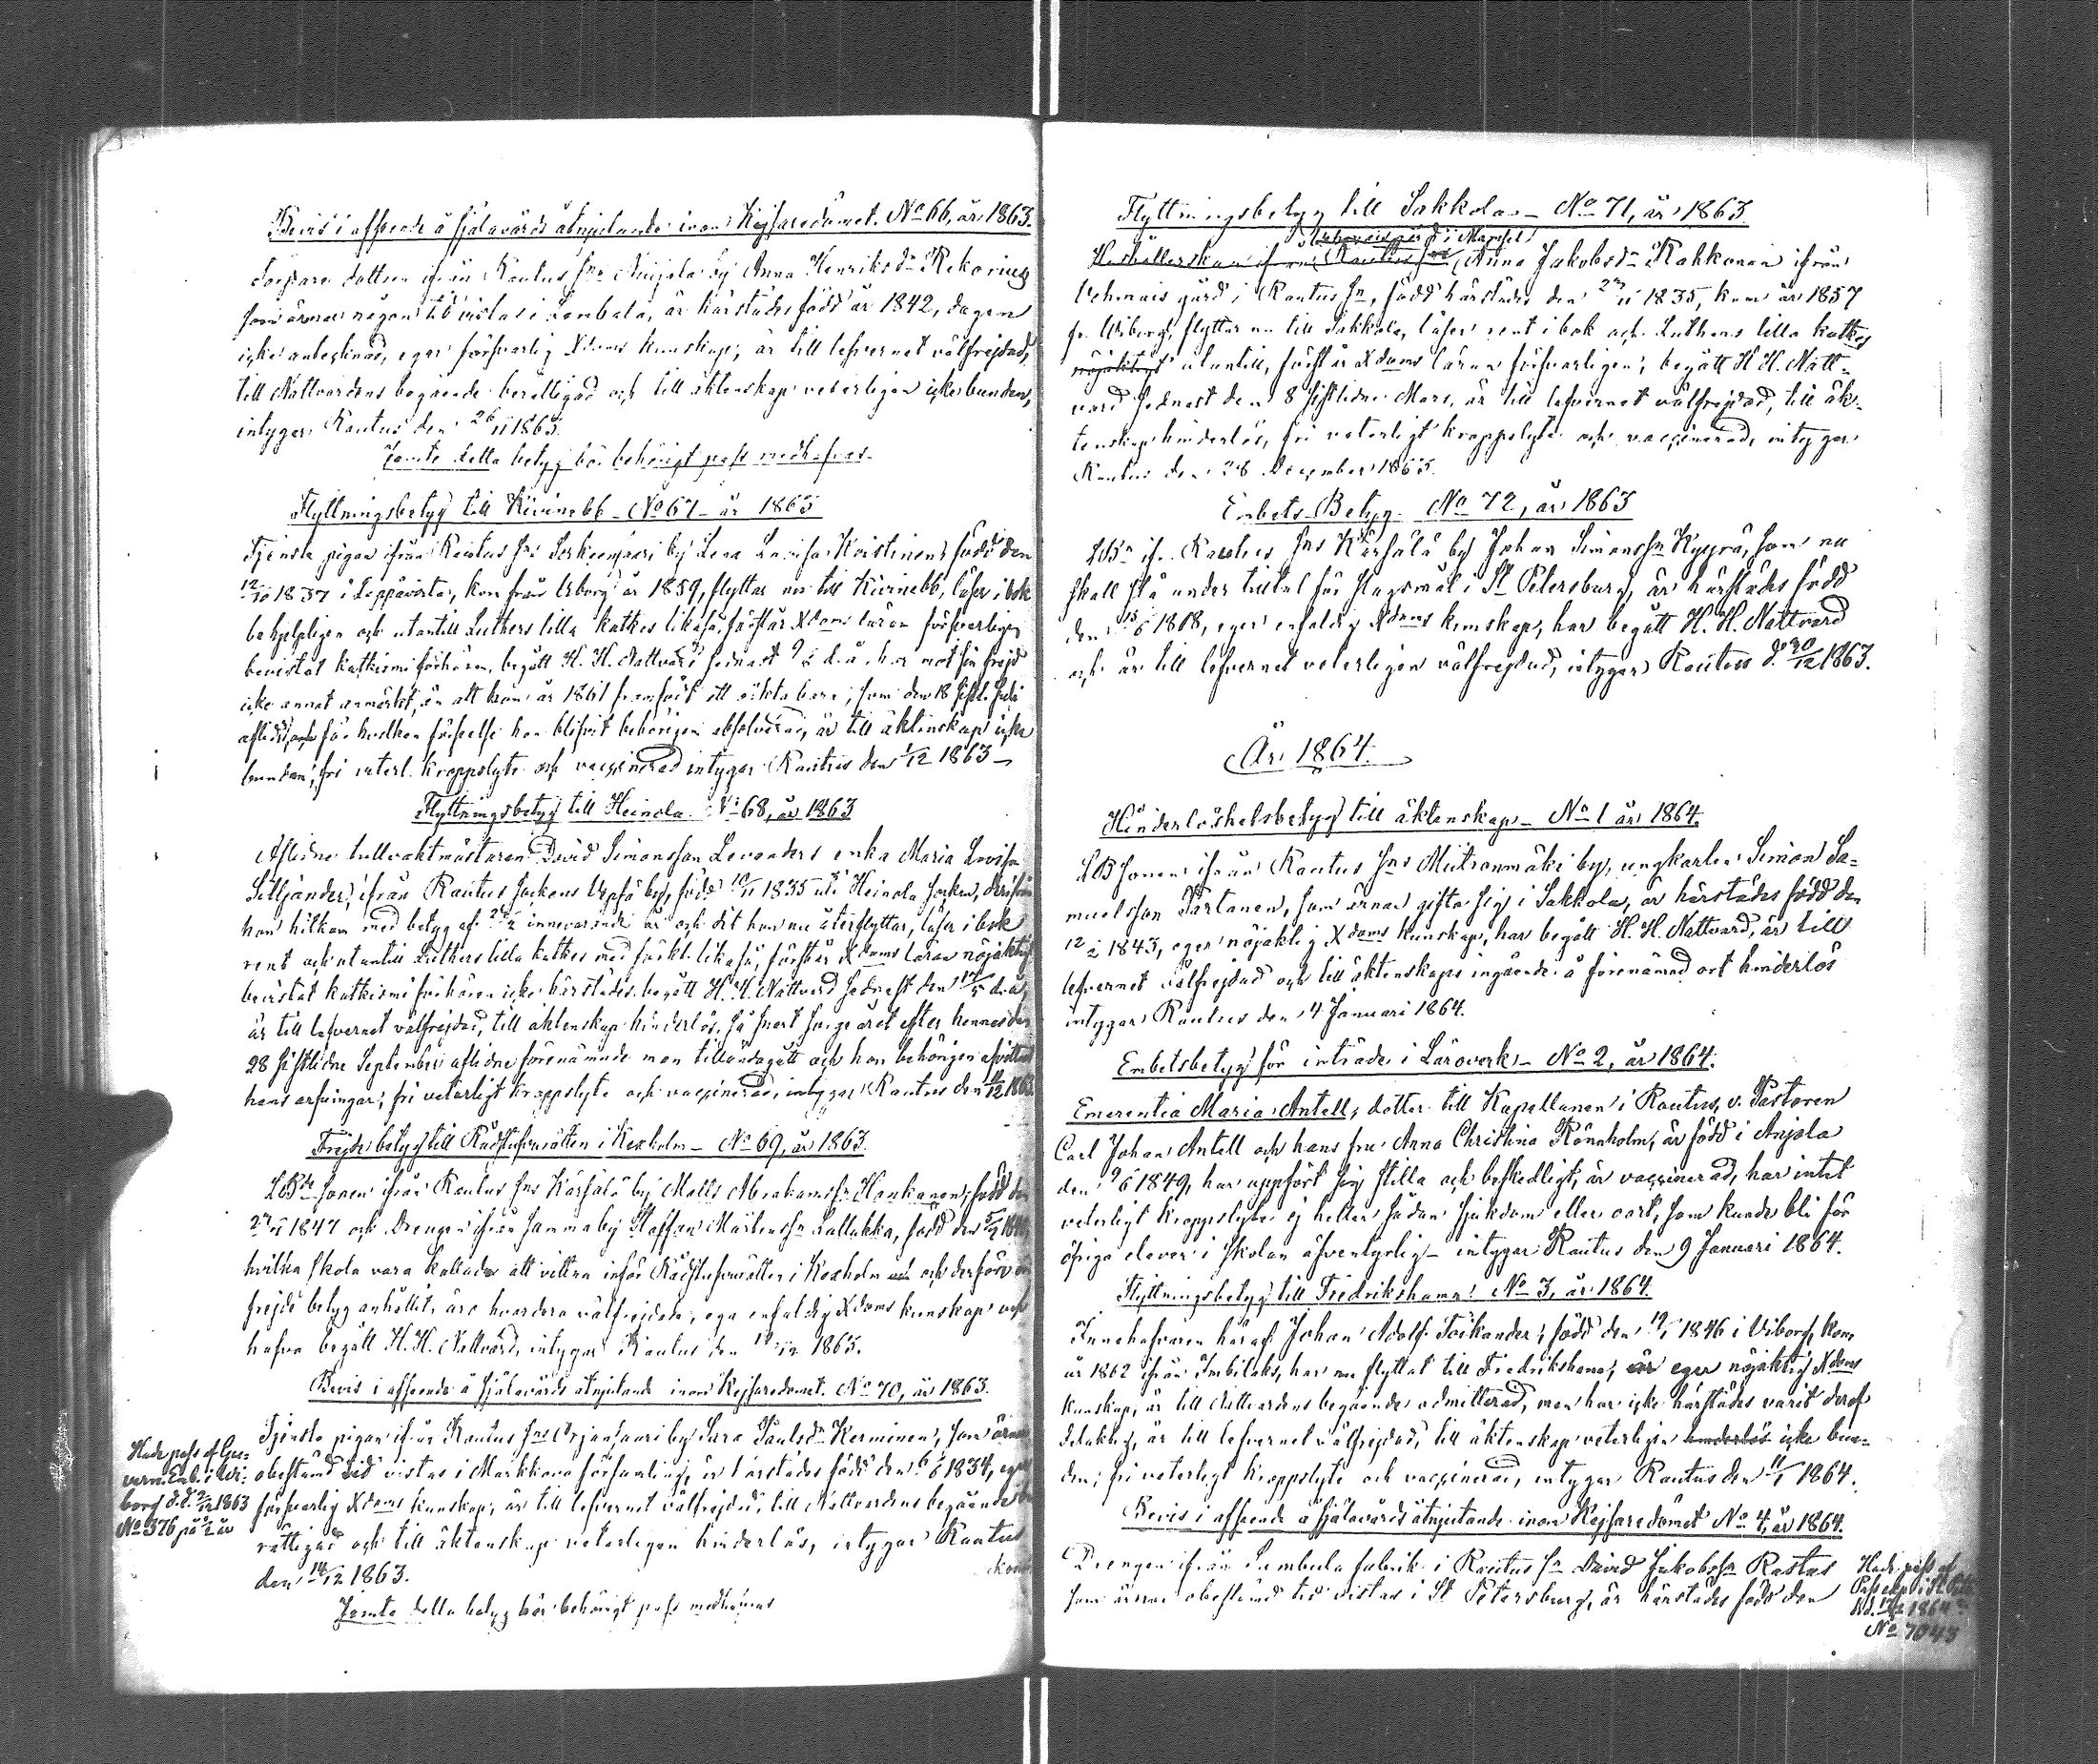 Bevis i afseende å själavårds åtnjutande inom Kejsaredömet. No 66, år 1863.
dottren ifrån Rautus sns by Anna Henriksdr Rekorius
som ärnar någon tid vistas i Lembala, är härstädes född år 1842, dagen
icke antecknad, eger försvarlig Xdoms kunskap, är till lefvernet välfrejdad,
till Nattvardens begående berettigad och till äktenskap veterligen icke bunden,
intygar Rautus den 26/11 1863.
Jemte detta betyg bör behörigt pass medhafvas.
Flyttningsbetyg till Kivinebb - No 67 - år 1863
Tjenste pigan ifrån Rautus sns by Lena Lovisa Koistinen, född den
12/10 1837 i Leppävirta, kom från Wiborg år 1859, flyttar nu till Kivinebb, läser i bok
behjelpligen och utantill Luthers lilla katkes likaså, förstår Xdoms läran försvarligen
bevistat katkismi förhören, begått H. H. Nattvard sednast d. å. har mot sin frejd
icke annat anmärkt, än att hon år 1861 framfödt ett oäkta barn, som den 18 sistl. Juli
aflidit, och för hvilken förseelse hon blifvit behörigen absolverad, är till äktenskap icke
bunden, fri veterl. kroppslyte och vaccinerad intygar Rautus den 1/12 1863 -
Flyttningsbetyg till Heinola No 68, år 1863
Aflidne tullvaktmästaren David Simonsson Levanders enka Maria Lovisa
Silljander, ifrån Rautus sockens by, född 10/11 1835 uti Heinola socken, derifrån
hon hitkom med betyg af innevarande år och dit hon nu återflyttar, läser i bok
rent och utantill Luthers lilla katkes med förkl. likaså, förstår Xdoms läran nöjaktigt
bevistat katkismi förhören icke härstädes, begått H. H. Nattvard sednast den d. å.
är till lefvernet välfrejdad, till äktenskap hinderlös, så snart sorgeåret efter hennes den
28 sistlidne September aflidne förenämnde man tilländagått och hon behörigen afvittrat
hans arfvingar; fri veterligt kroppslyte och vaccinerad, intygar Rautus den 11/12 1863.
Frejde betyg till Rådstufvurätten i Kexholm - No 69, år 1863.
LBde sonen ifrån Rautus sns Kärsälä by Matts Abrahamssn Haukanen, född den
1847 och Drengen ifrån samma by Staffan Mårtenssn Lallukka, född den
hvilka skola vara kallade att vittna inför Rådstufvurätten i Kexholm och derföre
frejde betyg anhållit, äro hvardera välfrejdade, ega enfaldig Xdoms kunskap och
hafva begått H. H. Nattvard, intygar Rautus den 1863.
Bevis i afseende å själavårds åtnjutande inom Kejsaredömet. No 70, år 1863.
Tjenste pigan ifrån Rautus sns Orjansaari by Sara Paulsdr Kerminen, som ärnar
obestämd tid vistas i Markkova församling, är härstädes född den 1834, eger
försvarlig Xdoms kunskap, är till lefvernet välfrejdad, till Nattvardens begående be-
rättigad och till äktenskap veterligen hinderlös, intygar Rautus
den 14/12 1863.
Jemte detta betyg bör behörigt pass medhafvas
Hade pass af Gu-
vern. Exp. i Wi-
borg d.d. 2/12 1863
No 376 på 1/2 år
Flyttningsbetyg till Sakkola - No 71, år 1863.
Hushållerskan ifrån Rautus Anna Jakobsdr Kakkonen ifrån
Vehmais gård i Rautus sn, född härstädes den 1835, kom år 1857
fr. Wiborg, flyttar nu till Sakkola, läser rent i bok och Luthers lilla katkes
nöjaktigt utantill, förstår Xdoms läran försvarligen, begått H. H. Natt-
vard sednast den 8 sistlidne Mars, är till lefvernet välfrejdad, till äk-
tenskap hinderlös, fri veterligt kroppslyte och vaccinerad, intygar
Rautus den 28 December 1863.
Embets-Betyg. No 72, år 1863
LBn if. Rautus sns Kärsälä by Johan Simonssn Kyyrö, som nu
skall stå under tilltal för slagsmål i St Petersburg, är härstädes född
den 1818, eger enfaldig Xdoms kunskap, har begått H. H. Nattvard
och är till lefvernet veterligen välfrejdad, intygar Rautus d. 30/12 1863.
År 1864.
Hinderlöshetsbetyg till äktenskap - No 1 år 1864.
LB sonen ifrån Rautus sns Miitronmäki by, ungkarlen Simon Sa-
muelsson Partanen, som ärnar gifta sig i Sakkola, är härstädes född den
1843, eger nöjaktig Xdoms kunskap, har begått H. H. Nattvard, är till
lefvernet välfrejdad och till äktenskaps ingående å förenämnd ort hinderlös
intygar Rautus den 4 Januari 1864.
Embetsbetyg för inträde i Läroverk - No 2, år 1864.
Emerentia Maria Antell, dotter till Kapellanen i Rautus, v. Pastoren
Carl Johan Antell och hans fru Anna Christina Rönnholm, är född i Anjala
den 9/6 1849, har uppfört sig stilla och beskedligt, är vaccinerad, har intet
veterligt kroppslyte ej heller sådan sjukdom eller vart, som kunde bli för
öfriga elever i skolan äfventyrlig - intygar Rautus den 9 Januari 1864.
Flyttningsbetyg till Fredrikshamn No 3, år 1864.
Innehafvaren häraf Johan Adolf Toikander, född den 1846 i Viborg, kom
år 1862 ifrån Imbilaks, har nu flyttat till Fredrikshamn, är eger nöjaktig Xdoms
kunskap, är till Nattvardens begående admitterad, men har icke härstädes varit deraf
delaktig, är till lefvernet välfrejdad, till äktenskap veterligen hinderlös icke bun-
den, fri veterligt kroppslyte och vaccinerad, intygar Rautus den 11/1 1864.
Bevis i afseende å själavårds åtnjutande inom Kejsaredömet No 4, år 1864.
Drengen ifrån Lembala fabrik i Rautus sn David Jakobssn Rastas
som ärnar obestämd tid vistas i St Petersburg, är härstädes född den
Hade pass af
Pass exp. i St
1864
No 7043